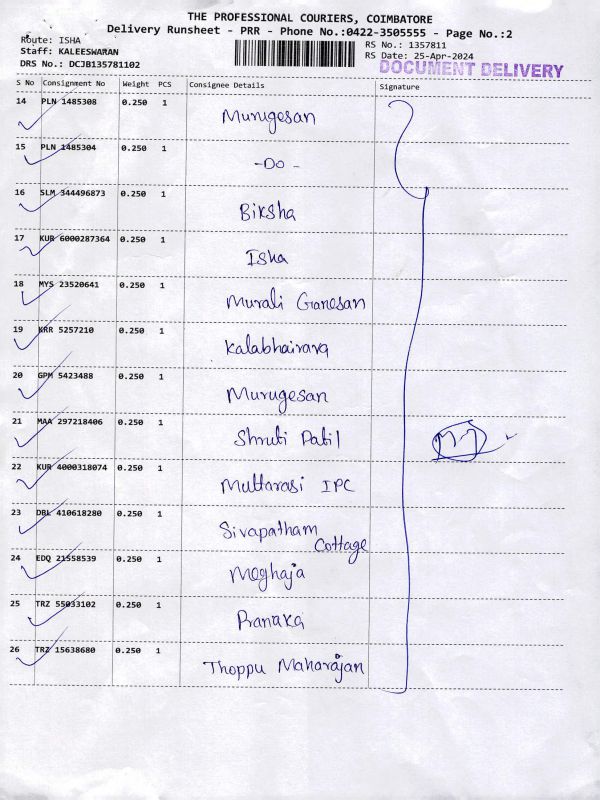 THE PROFESSIONAL COURIERS, COIMBATORE
Delivery Runsheet - PRR - Phone No.:0422-3505555 - Page No.:2
Route: ISHA
Staff: KALEESWARAN
DRS No.: DCJB135781102
RS No.: 1357811
RS Date: 25-Apr-2024
DOCUMENT DELIVERY
S No Consignment No Weight PCS Consignee Details Signature
14 PLN 1485308 0.250 1 Murugesan
15 PLN 1485304 0.250 1 -Do-
16 SLM 344496873 0.250 1 Biksha
17 KUR 6000287364 0.250 1 Isha
18 MYS 23520641 0.250 1 Murali Ganesan
19 KRR 5257210 0.250 1 Kalabhairava
20 GPM 5423488 0.250 1 Murugesan
21 MAA 297218406 0.250 1 Shruti Patil
22 KUR 4000318074 0.250 1 Muttarasi IPC
23 DBL 410618280 0.250 1 Sivapatham
Cottage
24 EDQ 21558539 0.250 1 Meghaja
25 TRZ 55033102 0.250 1
26 TRZ 15638680 0.250 1 Thoppu Maharajan